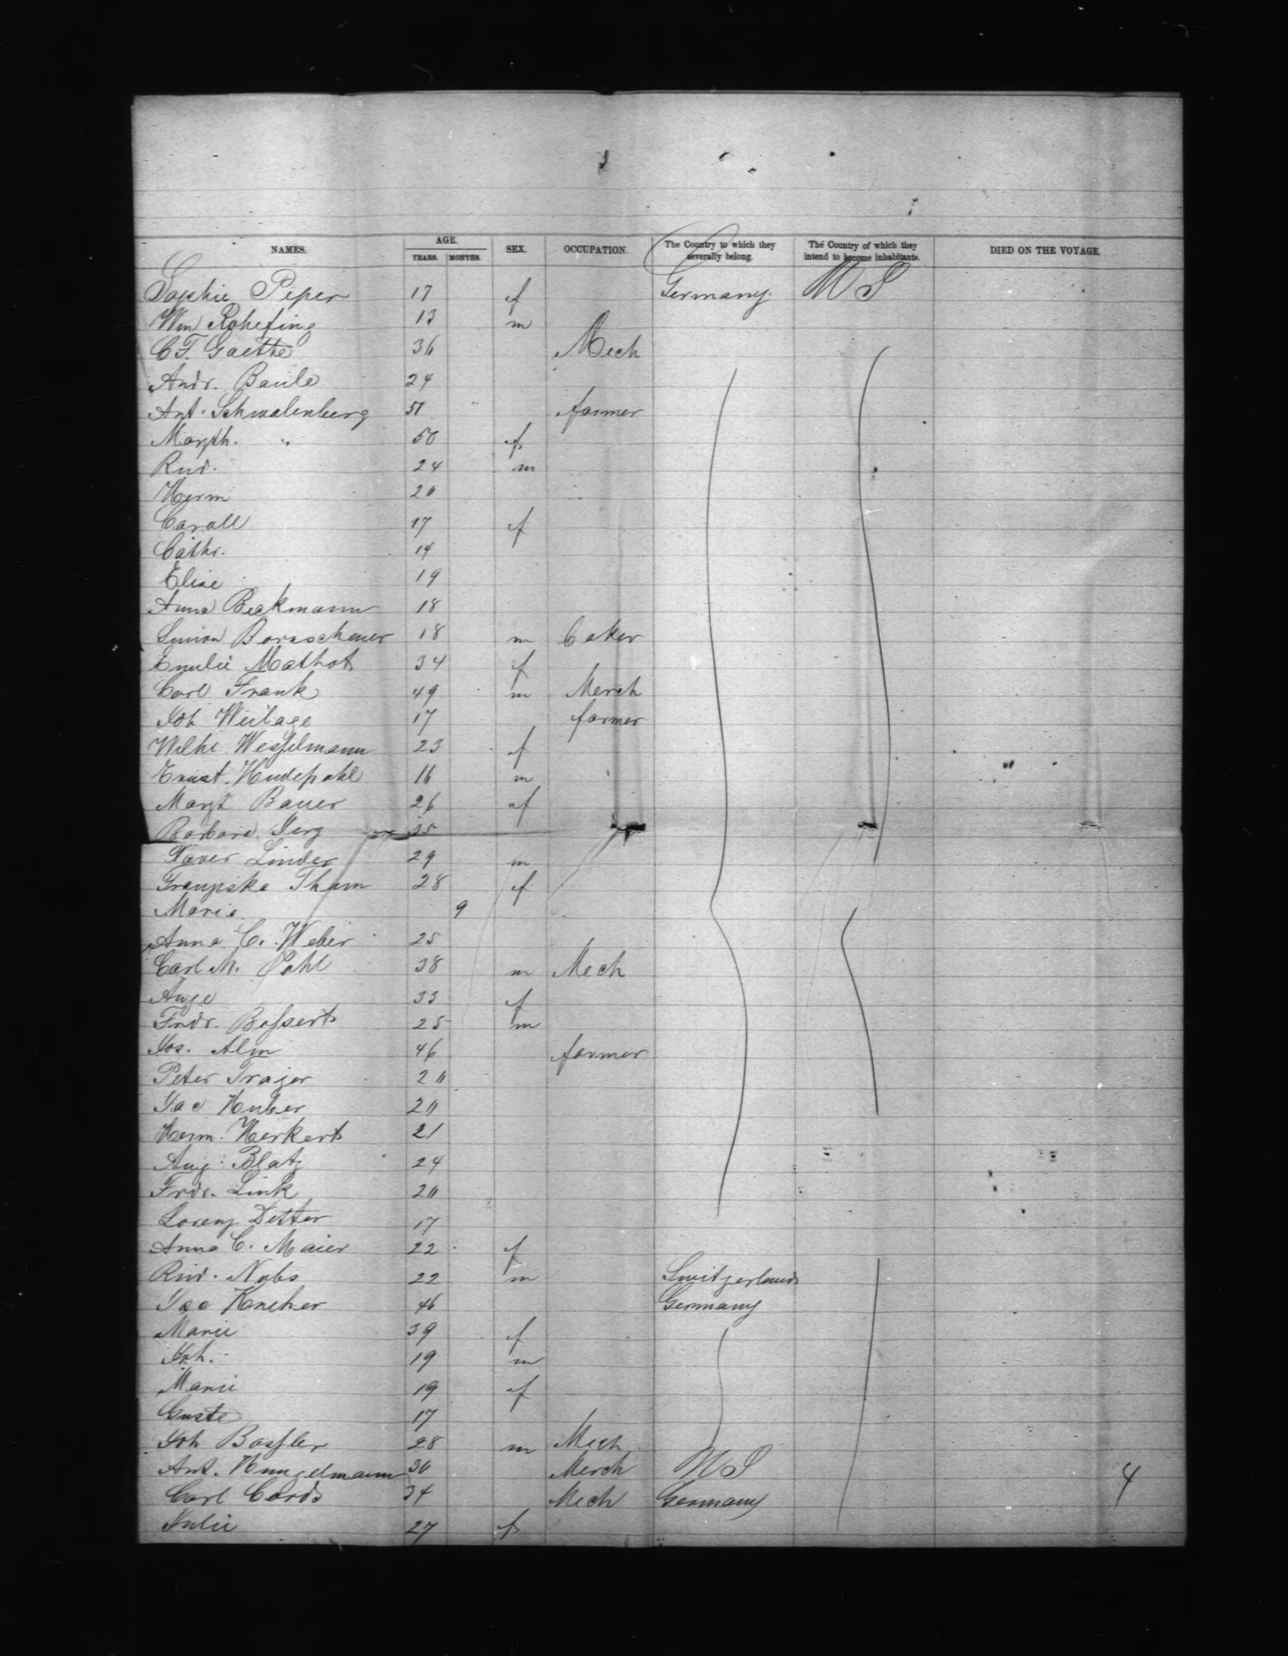 NAMES. AGE. YEARS. MONTHS. SEX. OCCUPATION. The Country to which they severally belong. The Country of which they intend to become inhabitants. DIED ON THE VOYAGE.
Sophie Peper 17 f Germany U S
Wm 13 m
C F. Goethe 36 Mech
Andr. Baule 24
Ant. Schmalenberg 51 farmer
Margth. " 50 f
Rud. 24 m
Herm 20
Caroll 17 f
Cathr. 14
Elise 19
Anna Beckmann 18
Simon 18 m baker
Emilie Mathot 34 f
Carl Frank 49 m Merch
Joh Weitage 17 farmer
Wilhe Wesselmann 23 f
Ernst Hudepohl 16 m
Margt Bauer 26 f
Barbara 35
Xaver Linder 29 m
Franziska Tham 28 f
Maria 9
Anna C. Weber 25
Carl M. Pohl 38 m Mech
Auge 33 f
Frdr. Bossert 25 m
Jos. Alm 46 farmer
Peter Trager 20
Jac Huber 20
Herm. Herkert 21
Aug. Blatz 24
Frdr. Link 20
Lorenz Detter 17
Anna C. Maier 22 f
Rud. Nabs 22 m Switzerland
Jac Kneher 46 Germany
Marie 39 f
Joh. 19 m
Marie 19 f
Guste 17
Joh Bossler 28 m Mech
Ant. Hungelmann 30 Merch U S
Carl Cords 34 Mech Germany
Julie 27 f
4